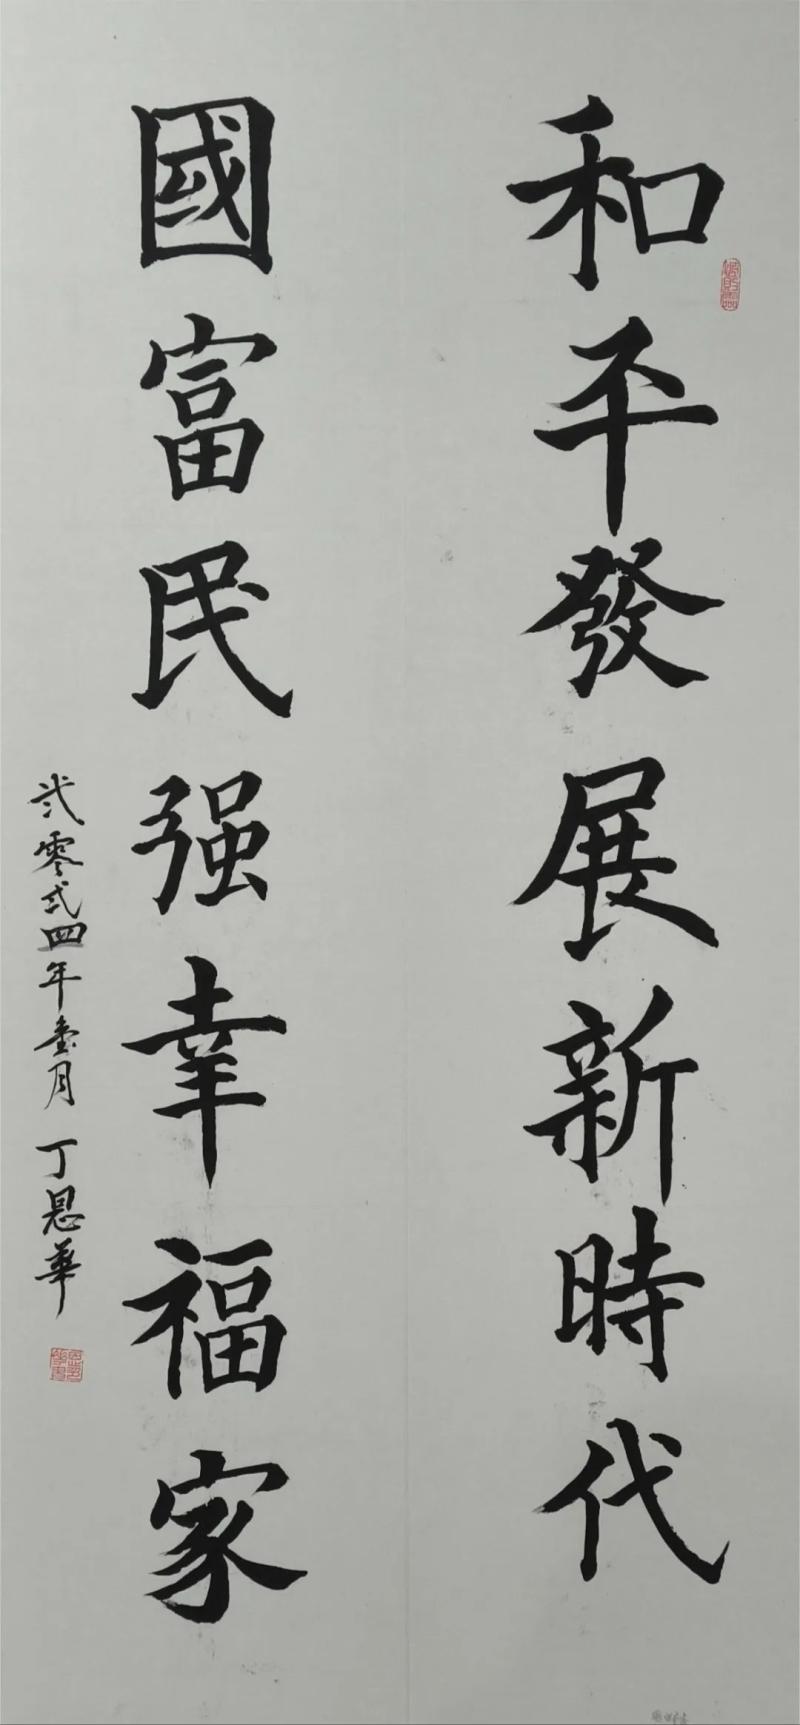 和平發展新時代
國富民强幸福家
弍零弍四年壹月 丁恩華